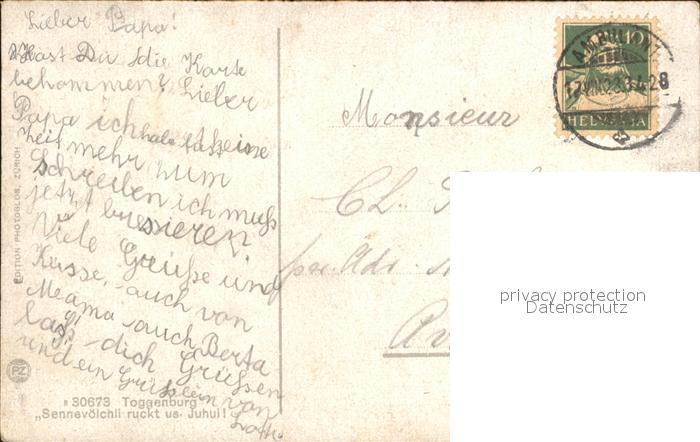 Lieber Papa!
Hast Du die Karte
bekommen? Lieber
Papa ich habe fast keine
Zeit mehr zum
Schreiben ich muß
jetzt bressieren.
Viele Grüße und
Küsse, auch von
Mama auch Berta
laßt dich Grüssen
und ein Grüsslein von
Monsieur
CL.
per Adr.
HELVETIA
EDITION PHOTOGLOB, ZÜRICH
PZ
30673 Toggenburg
„Sennevölchli ruckt us. Juhui!
privacy protection
Datenschutz